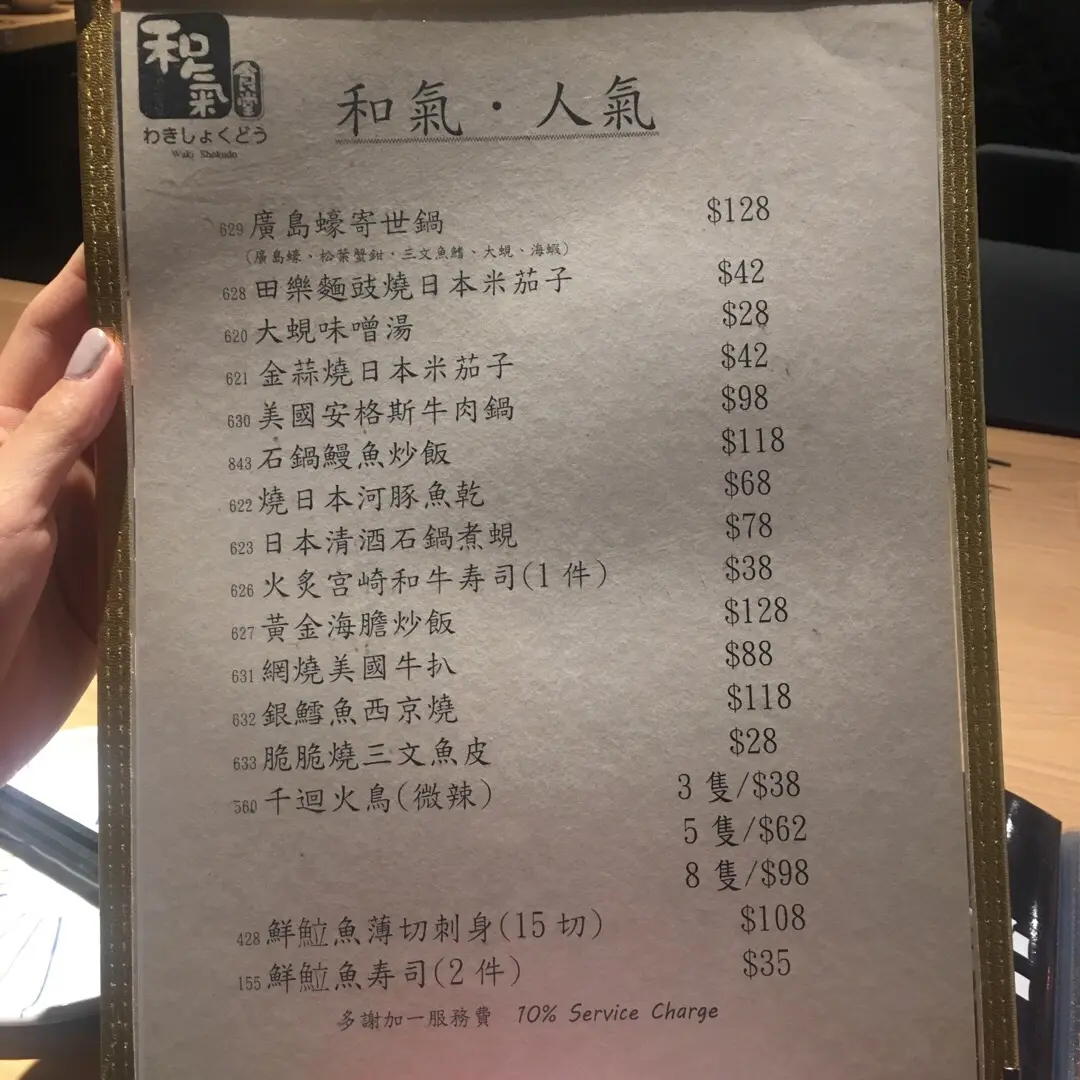 和氣食堂
わきしょくどう
Waki Shokudo
和氣・人氣
629 廣島蠔寄世鍋 $128
(廣島蠔、松葉蟹鉗、三文魚鰭、大蜆、海蝦)
628 田樂麵豉燒日本米茄子 $42
620 大蜆味噌湯 $28
621 金蒜燒日本米茄子 $42
630 美國安格斯牛肉鍋 $98
843 石鍋鰻魚炒飯 $118
622 燒日本河豚魚乾 $68
623 日本清酒石鍋煮蜆 $78
626 火炙宮崎和牛寿司(1 件) $38
627 黃金海膽炒飯 $128
631 網燒美國牛扒 $88
632 銀鱈魚西京燒 $118
633 脆脆燒三文魚皮 $28
560 千迴火鳥(微辣) 3 隻/$38
5 隻/$62
8 隻/$98
428 鮮鮋魚薄切刺身(15 切) $108
155 鮮鮋魚寿司(2 件) $35
多謝加一服務費 10% Service Charge